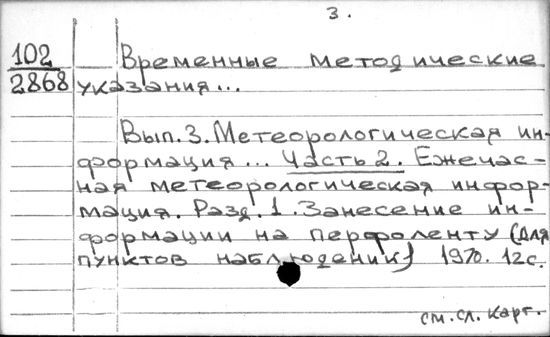 3.
102 Временные методические
2868 указания...
Вып. 3. Метеорологическая ин-
формация... Часть 2. Ежечас-
ная метеорологическая инфор-
мация. Разд. 1. Занесение ин-
формации на перфоленту (для
пунктов наблюдений) 1970. 12с.
см. сл. карт.